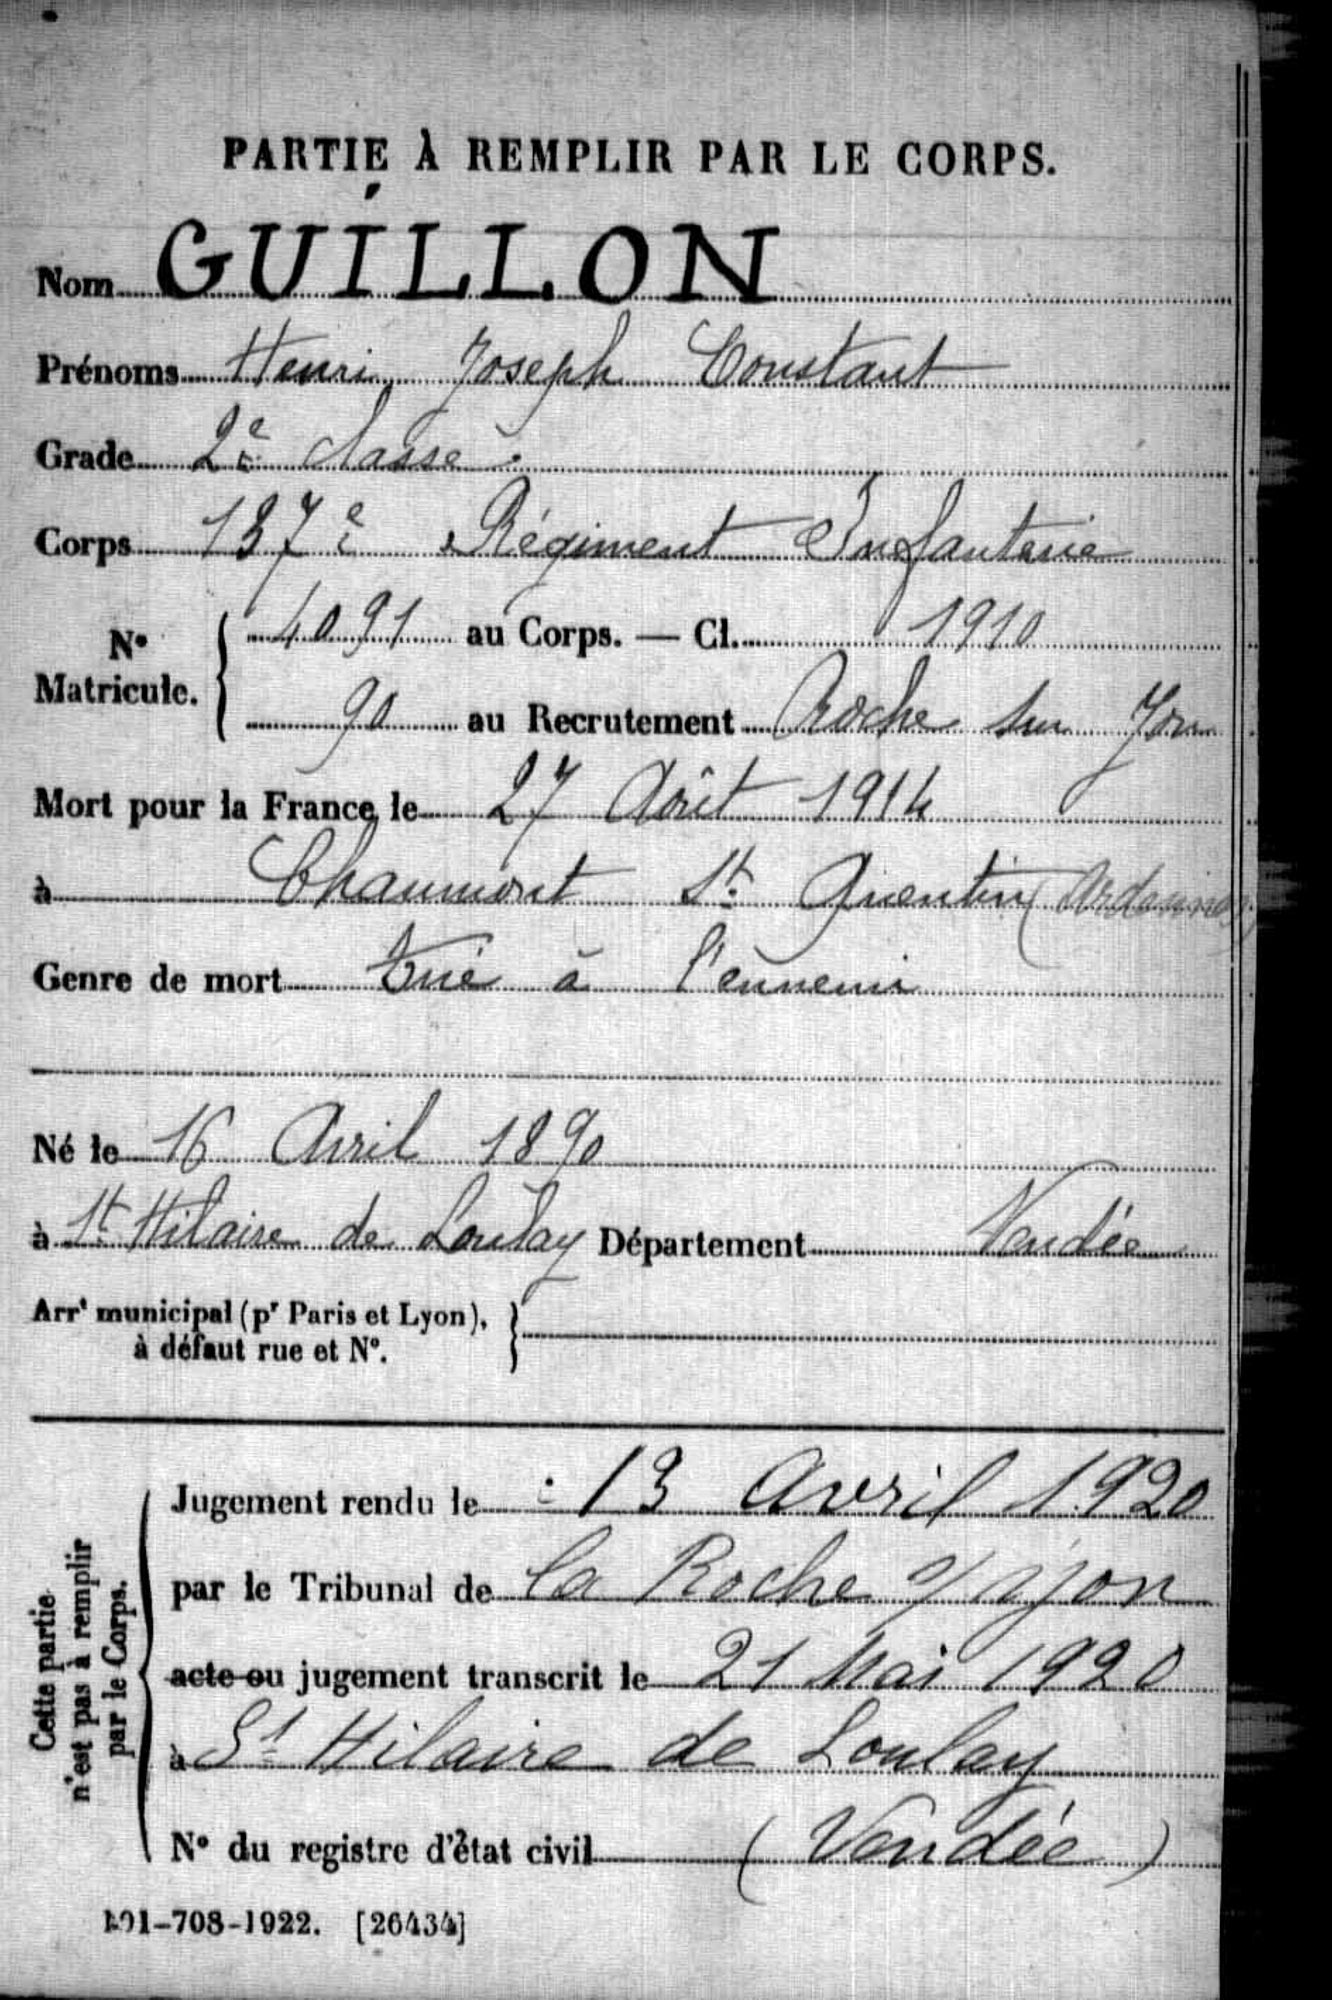 PARTIE À REMPLIR PAR LE CORPS.
Nom GUILLON
Prénoms Henri Joseph Constant
Grade 2e classe
Corps 137e Régiment Infanterie
No Matricule. 4091 au Corps. — Cl. 1910
90 au Recrutement Roche sur Yon
Mort pour la France le 27 Août 1914
à Chaumont St Quentin (Ardennes)
Genre de mort Tué à l'ennemi
Né le 16 Avril 1890
à St Hilaire de Loulay Département Vendée
Arrt municipal (pr Paris et Lyon),
à défaut rue et No.
Cette partie
n'est pas à remplir
par le Corps.
Jugement rendu le 13 avril 1920
par le Tribunal de la Roche s/ yon
acte ou jugement transcrit le 21 Mai 1920
à St Hilaire de Loulay
No du registre d'état civil (Vendée)
101-708-1922. [26434]